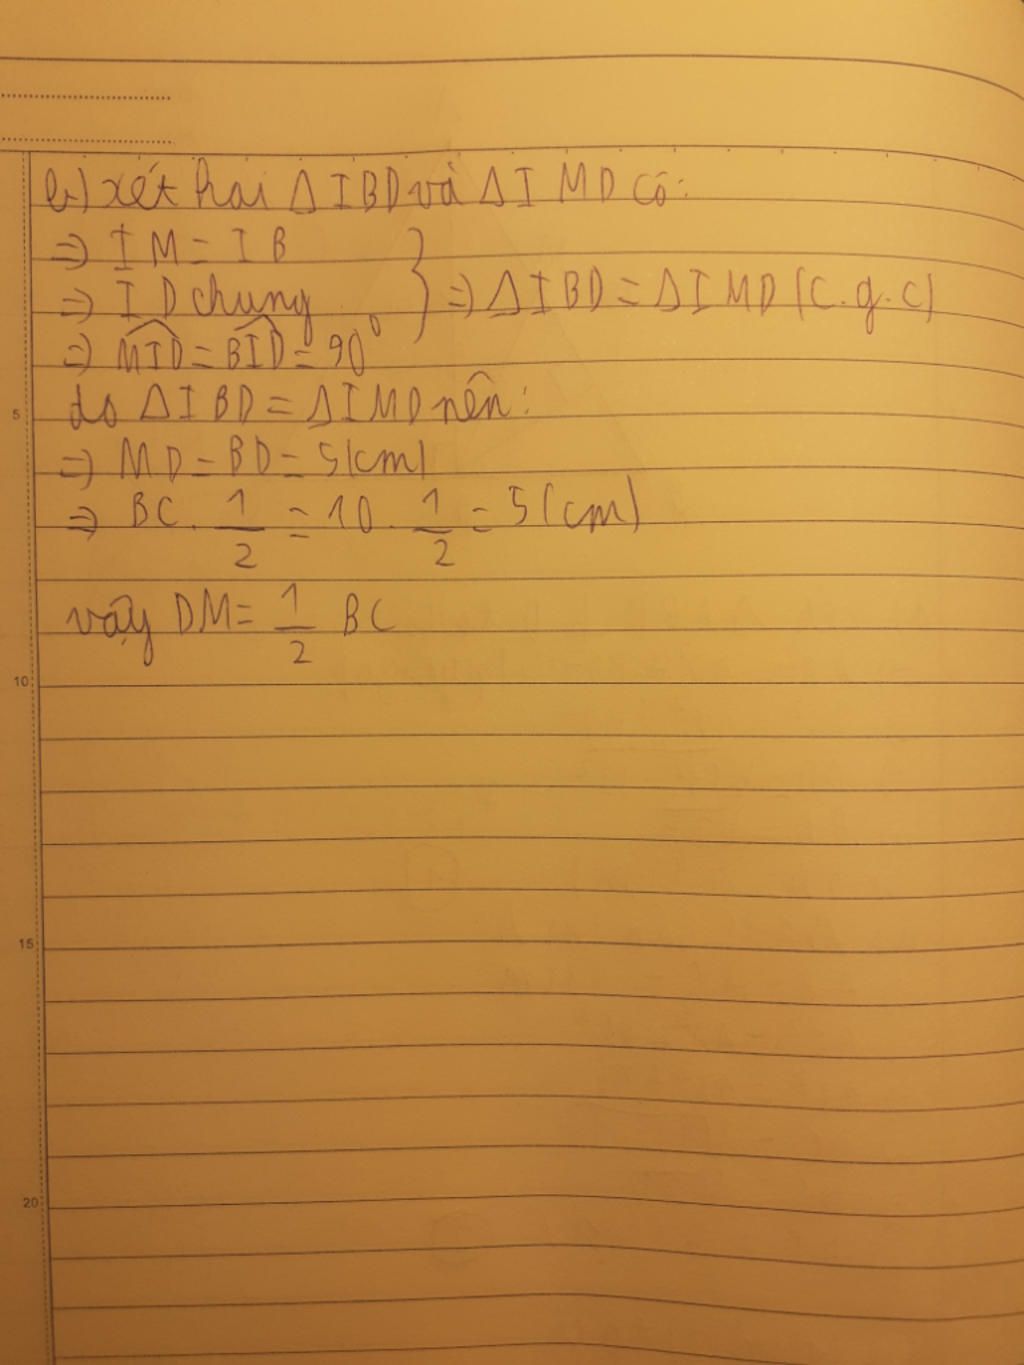 b) xét hai ΔIBD và ΔIMD có:
⇒ IM = IB
⇒ ID chung
⇒ \widehat{MID} = \widehat{BID} = 90°
} ⇒ ΔIBD = ΔIMD (c.g.c)
do ΔIBD = ΔIMD nên:
⇒ MD = BD = 5(cm)
⇒ BC . 1/2 = 10 . 1/2 = 5(cm)
vậy DM = 1/2 BC
5
10
15
20